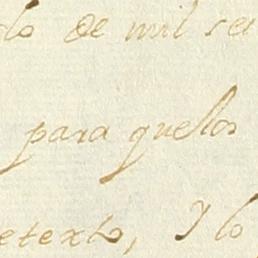 do de mil se
para quellos
etexto, Y lo